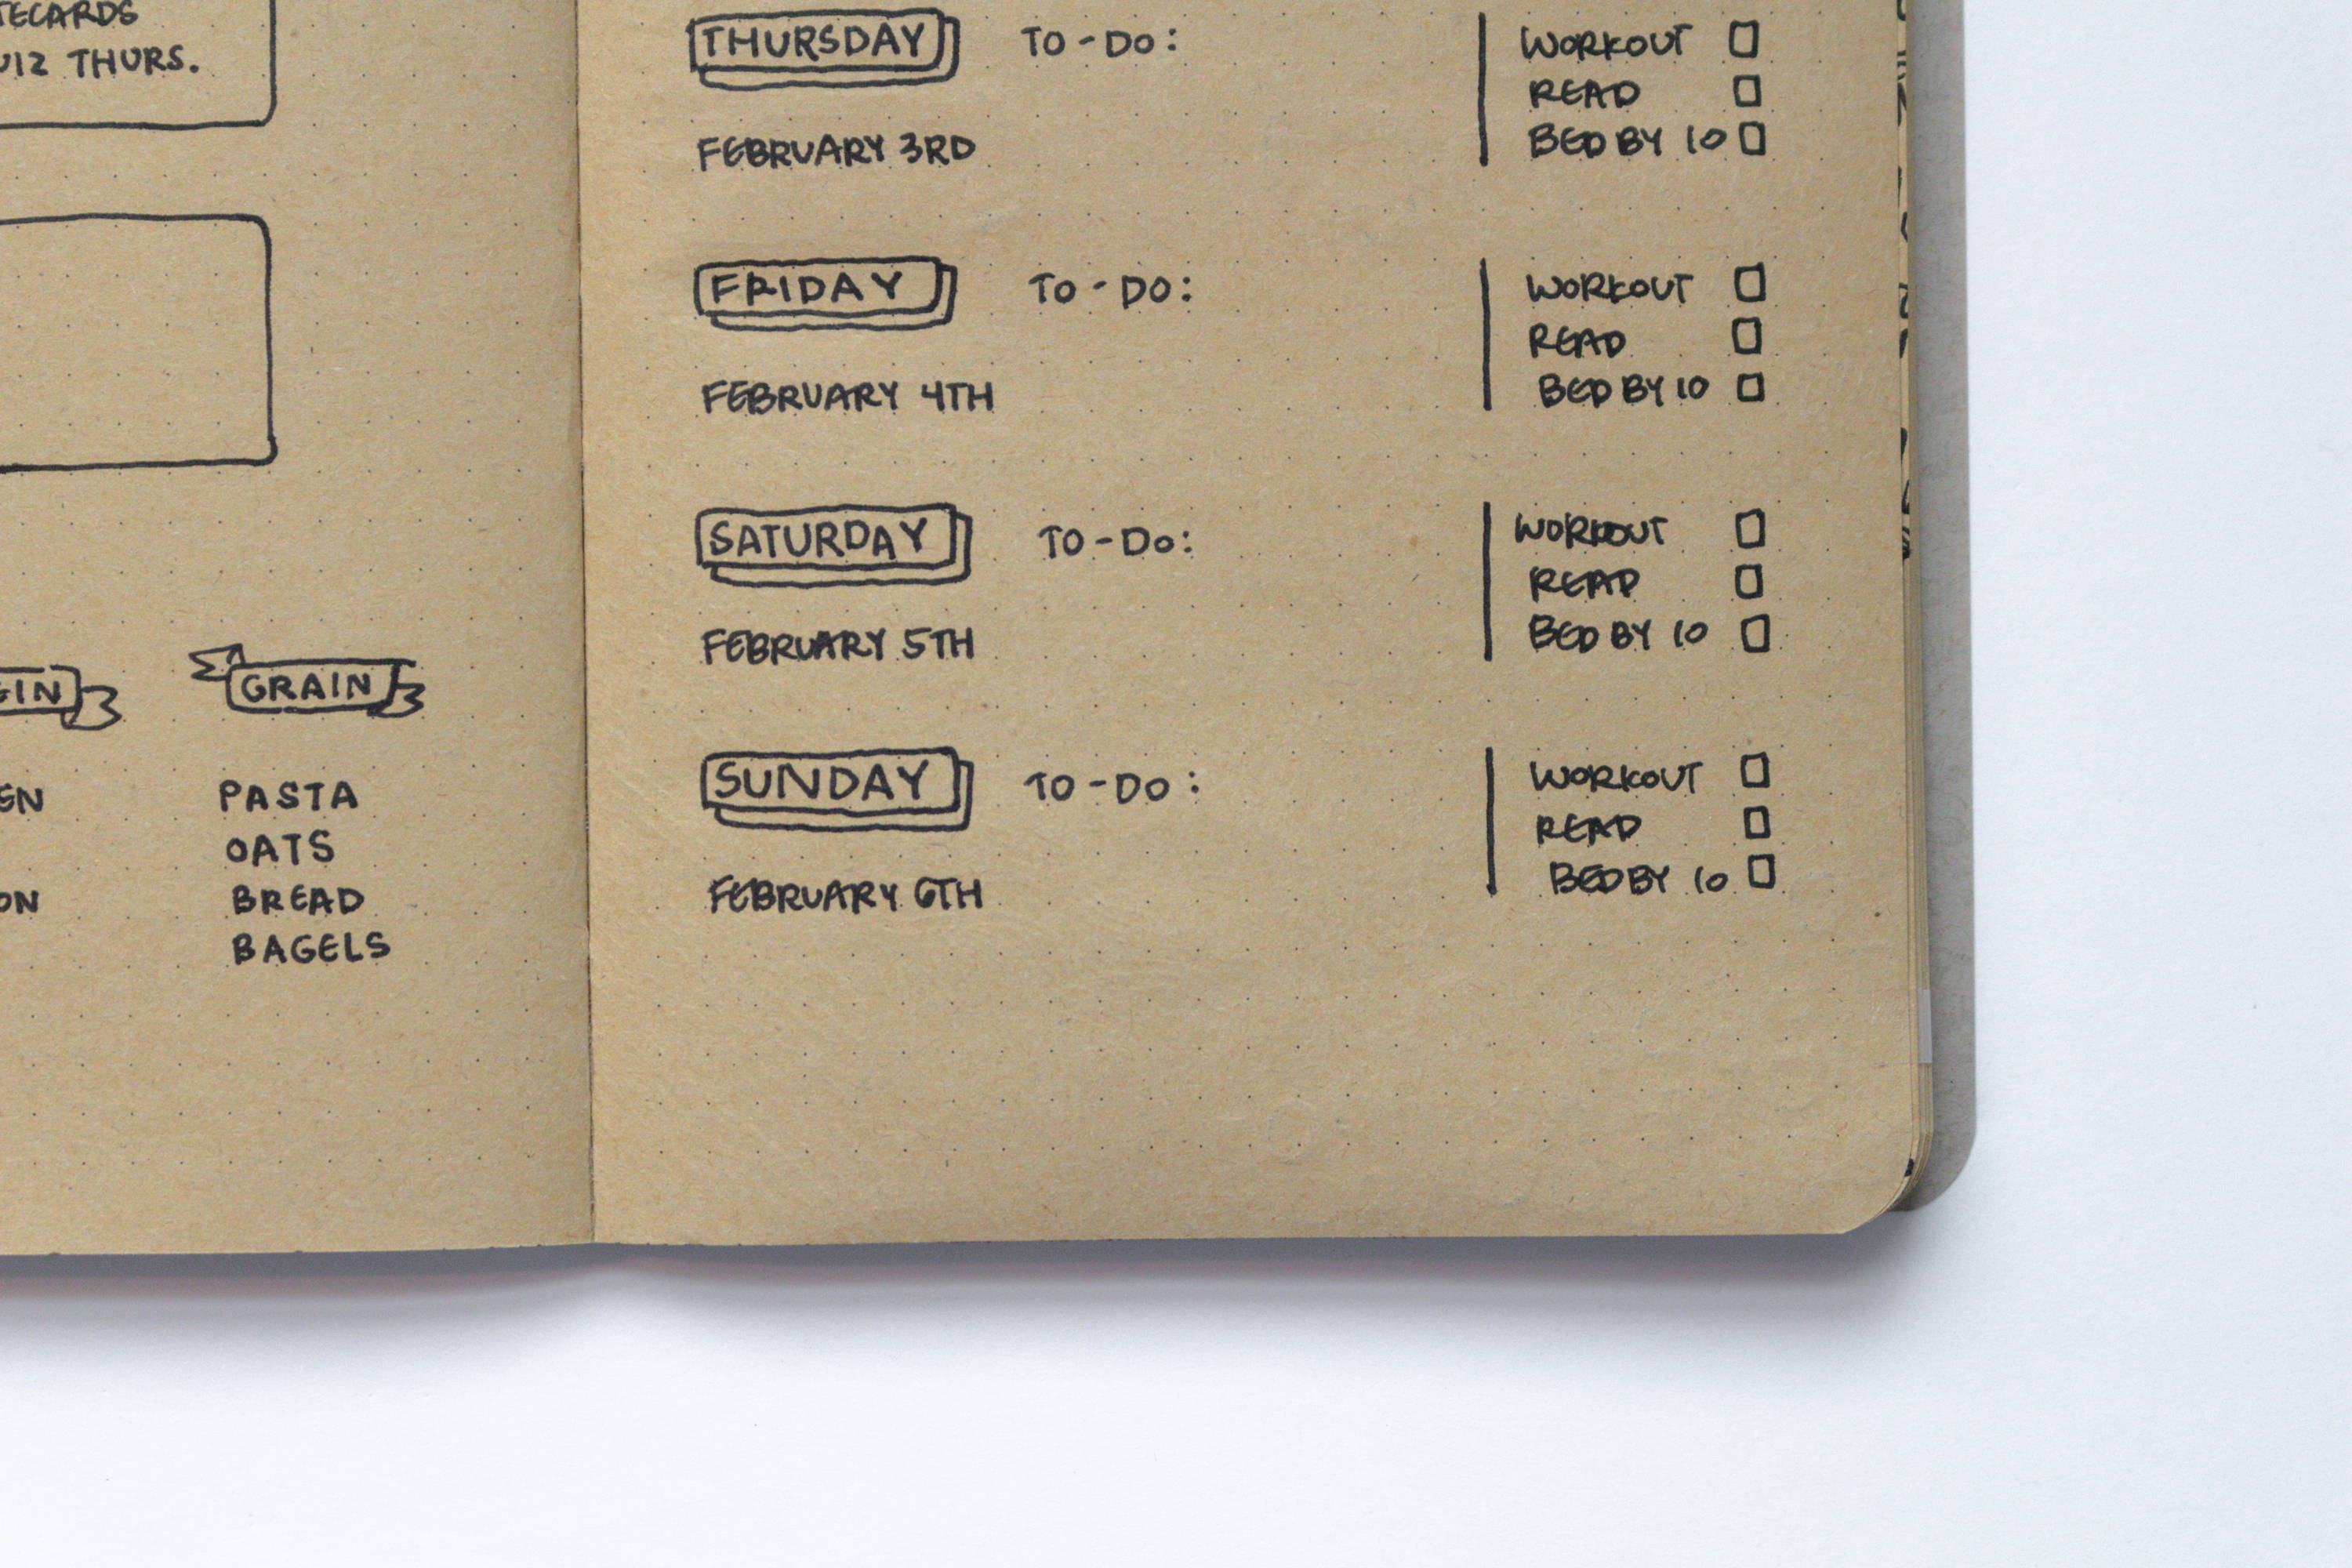 THURS.
GRAIN
PASTA
OATS
BREAD
BAGELS
THURSDAY TO-DO: WORKOUT
READ
FEBRUARY 3RD BED BY 10
FRIDAY TO-DO: WORKOUT
READ
FEBRUARY 4TH BED BY 10
SATURDAY TO-DO: WORKOUT
READ
FEBRUARY 5TH BED BY 10
SUNDAY TO-DO: WORKOUT
READ
FEBRUARY 6TH BED BY 10